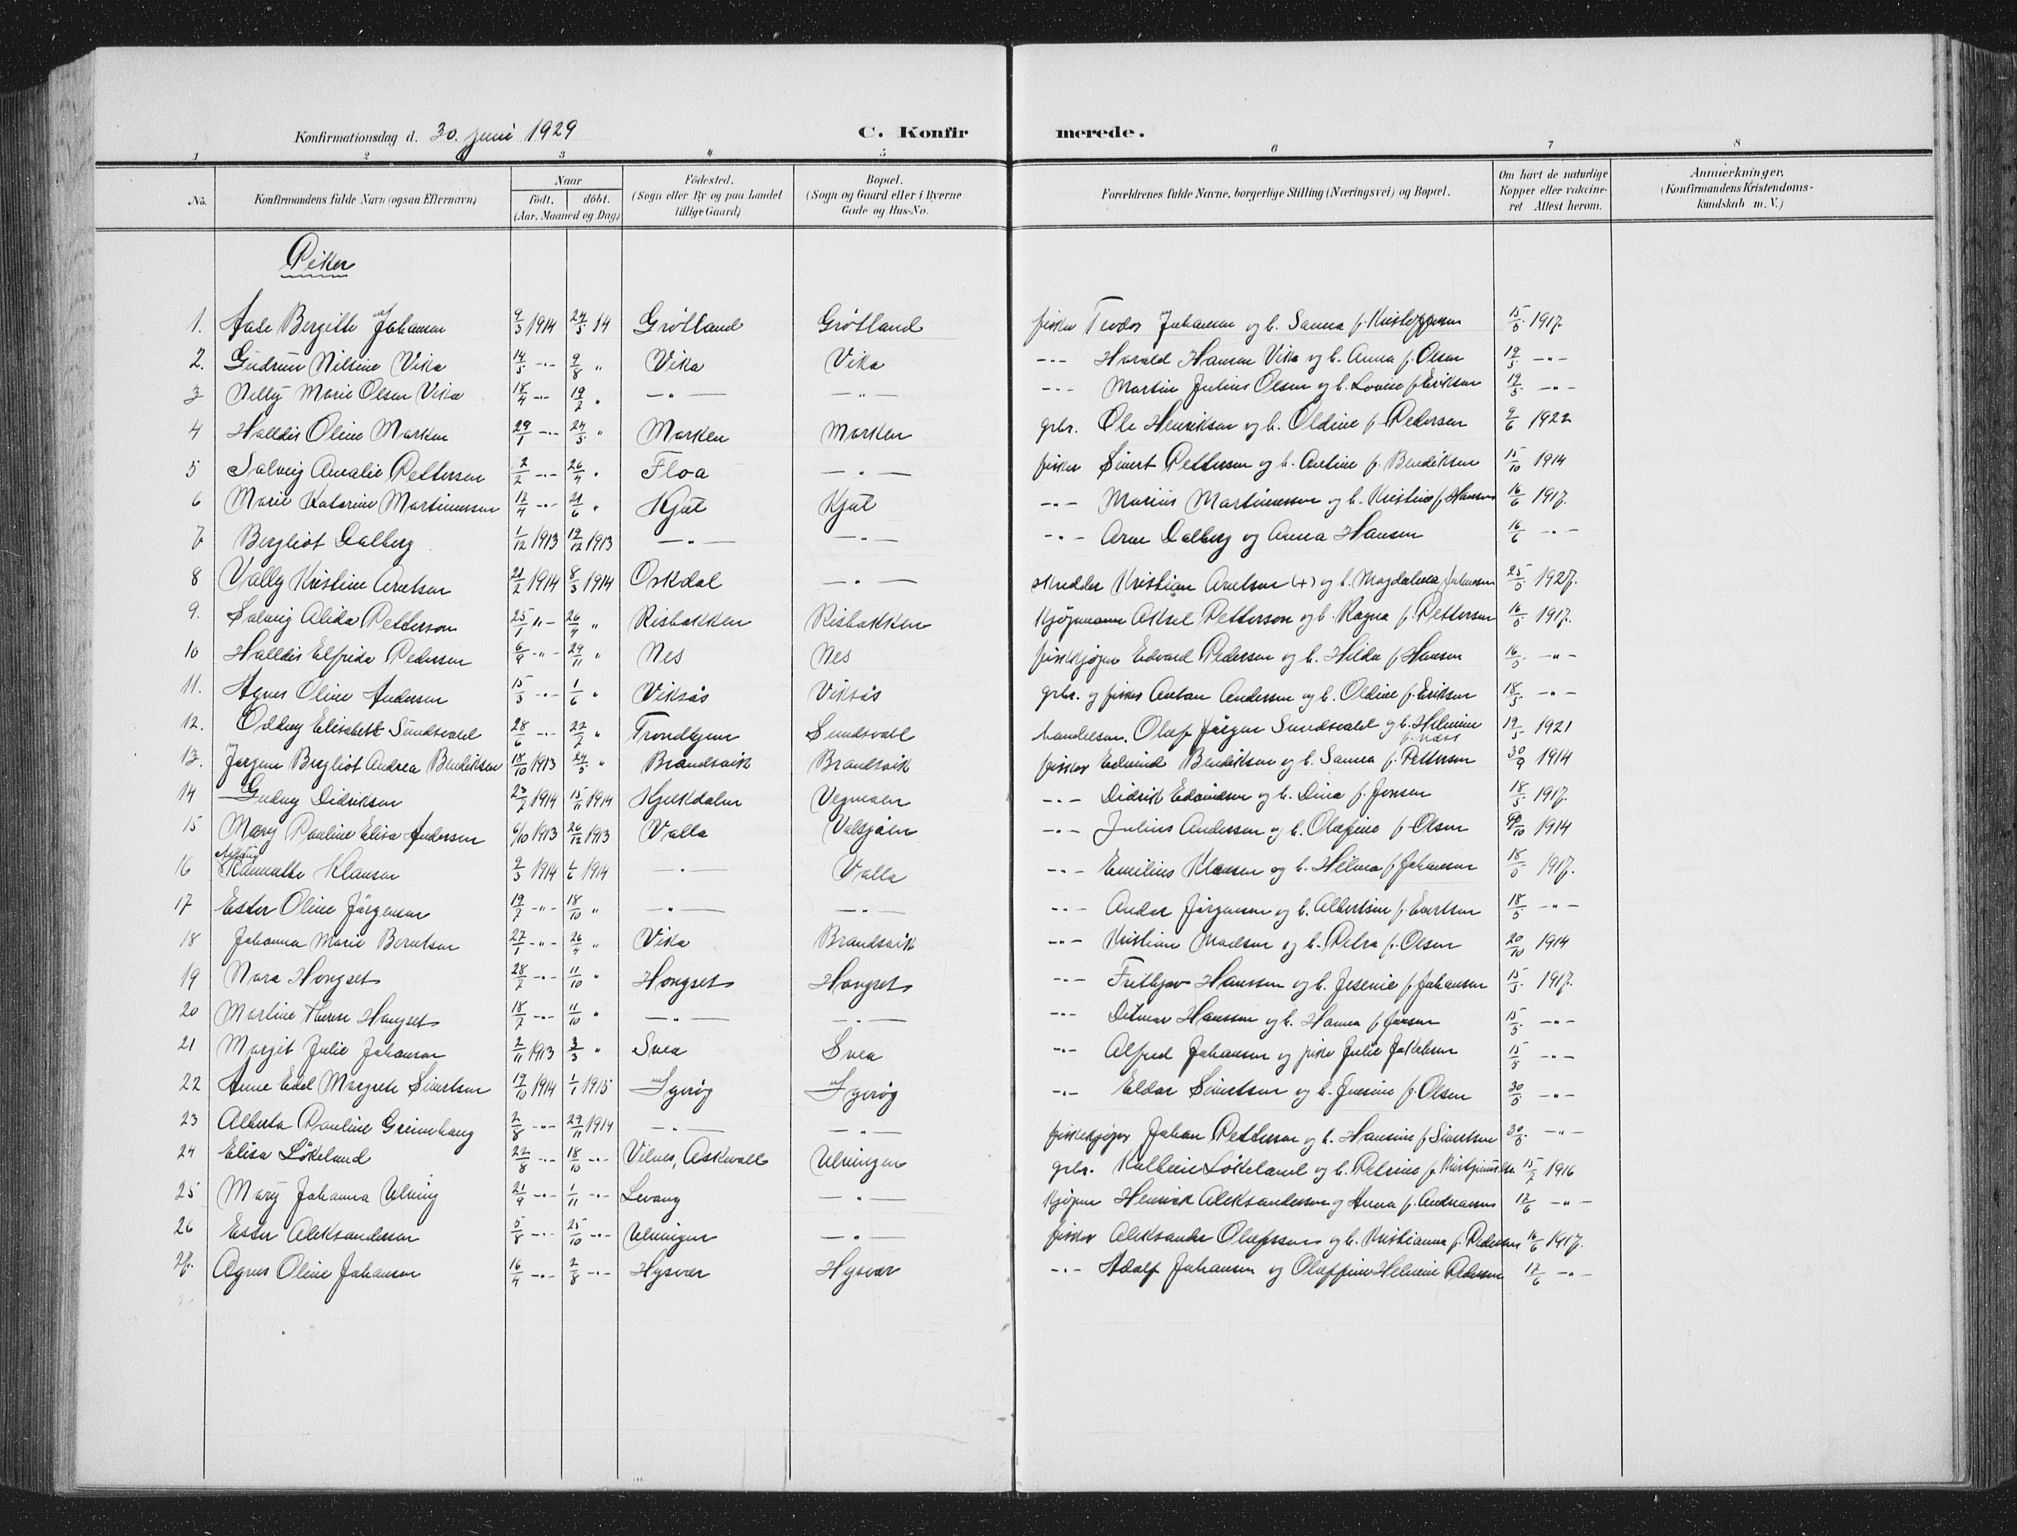 Konfirmationsdag d. 30. juni 1929
C. Konfir merede.
1 2 3 4 5 6 7 8
No. Konfirmandens fulde Navn (ogsaa Efternavn) Naar født. døbt. (Aar, Maaned og Dag) Fødested. (Sogn eller By og paa Landet tillige Gaard) Bopæl. (Sogn og Gaard eller i Byerne Gade og Hus-No. Forældrenes fulde Navne, borgerlige Stilling (Næringsvei) og Bopæl. Om havt de naturlige Kopper eller vakcineret Attest herom. Anmerkninger. (Konfirmandens Kristendomskundskab m. V.)
Piker
1. Aase Bergitte Johansen 9/3 1914 24/5 14 Grøtland Grøtland fisker Teodor Johansen og h. Sanna f. Kristoffersen 15/5 1917.
2. Gudrun Nilsine Vika 14/5 -"- 9/8 " Vika Vika -"- Harald Hansen Vika og h. Anna f. Olsen 19/5 -"-
3 Nelly Marie Olsen Vika 18/4 -"- 19/7 " -"- -"- -"- Martin Julius Olsen og h. Lovise f. Eriksen 19/5 -"-
4 Halldis Oline Marken 29/1 -"- 24/5 " Marken Marken grbr. Ole Henriksen og h. Oldine f. Pedersen 9/6 1922
5 Solveig Amalie Pettersen 2/2 -"- 26/4 " Floa -"- fisker Sivert Pettersen og h. Antine f. Bendiksen 15/10 1914
6 Marie Katarine Martinussen 12/4 -"- 21/6 " Kjul Kjul -"- Marius Martinussen og h. Kristine f. Hansen 16/6 1917.
7 Bergliot Dalberg 1/12 1913 19/12 1913 -"- -"- -"- Arne Dalberg og Anna Hansen 16/6 -"-
8 Vally Kristine Arntsen 21/2 1914 8/3 1914 Oskdal -"- skredder Kristian Arntsen (+) og h. Magdalena Johansen 25/5 1927.
9. Solveig Alida Petterson 25/1 "- 26/4 " Risbakken Risbakken Kjøpmann Aksel Petterson og h. Ragna f. Pettersen 16/5 1917.
10 Halldis Elfrida Pedersen 6/9 -"- 29/11 " Nes Nes fiskekjøper Edvard Pedersen og h. Hilda f. Hansen 16/5 -"-
11. Agnes Oline Andersen 15/3 -"- 1/6 " Viksås Viksås grbr. og fisker Anton Andersen og h. Oldine f. Eriksen 18/5 -"-
12. Oddny Elisabett Sundsvald 28/6 -"- 22/7 " Trondhjem Sundsvoll handelsm. Olaf Jørgen Sundsvald og h. Helmine f. Næss 19/5 1921
13. Jørgine Bergliot Andrea Bendiksen 18/10 1913 24/5 " Brandsvik Brandsvik fisker Edmund Bendiksen og h. Sanna f. Pettersen 30/9 1914
14 Gudny Didriksen 23/7 1914 15/11 1914 Hjelkdalen Vegmoen -"- Didrik Edvindsen og h. Dina f. Jensen 18/5 1917.
15 Mary Pauline Elisa Andersen 6/10 1913 26/12 1913 Valla Valsjøen -"- Julius Andersen og h. Olafine f. Olsen 1914
16 Kamutte Klausen 9/3 1914 1/6 1914 -"- Valla -"- Emilius Klausen og h. Helma f. Johansen 18/5 1917.
17 Ester Oline Jørgensen 19/7 -"- 18/10 " -"- -"- -"- Andor Jørgensen og h. Albertine f. Evertsen 18/5 -"-
18 Johanna Marie Berntsen 27/1 -"- 26/4 " Vika Brandsvik -"- Kristian Madsen og h. Petra f. Olsen 20/10 1914
19 Nora Hongset 28/7 -"- 11/10 " Hongset Hongset -"- Fritjov Hanssen og h. Jesenie f. Johansen 15/5 1917.
20 Martine Therese Hongset 18/7 -"- 11/10 " -"- -"- -"- Ditmar Hanssen og h. Hanna f. Jensen 15/5 -"-
21 Margit Julie Johansen 2/11 1913 3/3 " Svea Svea -"- Alfred Johansen og pike Julie Jakobsen 15/5 -"-
22 Anne Edel Margrete Sivertsen 19/10 1914 1/1 1915 Igerøy Igerøy -"- Eldar Sivertsen og h. Jensine f. Olsen 30/5 -"-
23 Alberta Pauline Grønnhaug 2/8 -"- 29/11 1914 -"- -"- fiskekjøper Johan Petterson og h. Hansine f. Sivertsen 30/5 -"-
24 Elisa Løkeland 22/8 -"- 18/10 -"- Vilnes, Askvoll Ulvingen grbr. Kolbein Løkeland og h. Petrine f. 15/7 1916
25 Mary Johanna Ulving 21/9 -"- 1/11 -"- Levang -"- kjøpm. Henrik Aleksandersen og Anna f. Andreassen 17/6 -"-
26 Ester Aleksandersen 5/8 -"- 25/10 -"- Ulvingen -"- fisker Aleksander Olafssen og h. Kristianna f. Pedersen 16/6 1917.
27. Agnes Oline Johansen 16/4 -"- 2/8 -"- Hysvær Hysvær -"- Adolf Johansen og Olaffine Helmine Pedersen 17/6 -"-